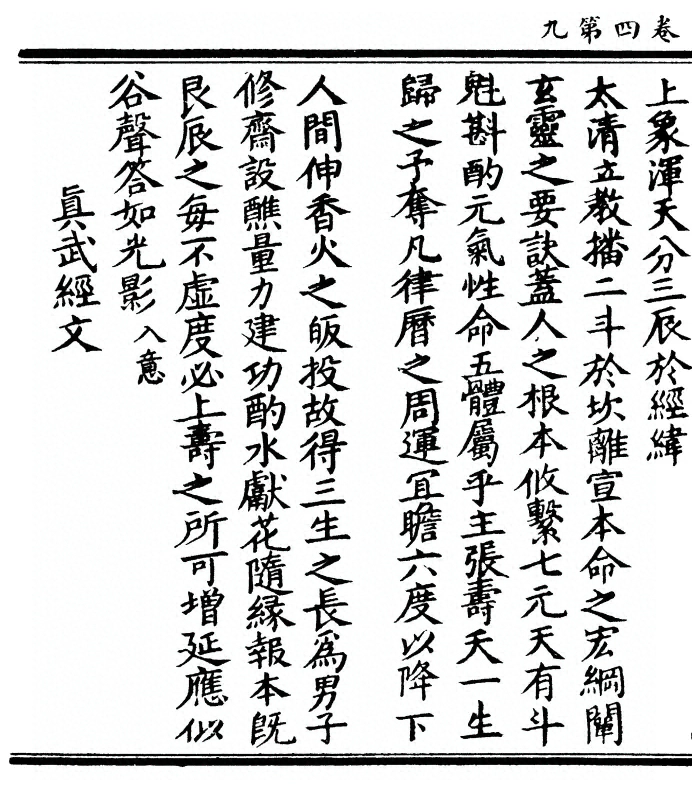 卷四第九
上象渾天八分三辰於經緯
太清立教播二斗於坎離宣本命之宏綱闡
玄靈之要訣蓋人之根本攸繫七元天有斗
魁斟酌元氣性命五體屬乎主張壽夭一生
歸之予奪凡律曆之周運冝瞻六度以降下
人間伸香火之皈投故得三生之長爲男子
修齋設醮量力建功酌水獻花隨緣報本旣
艮辰之每不虛度必上壽之所可增延應似
谷聲答如光影入意
眞武經文